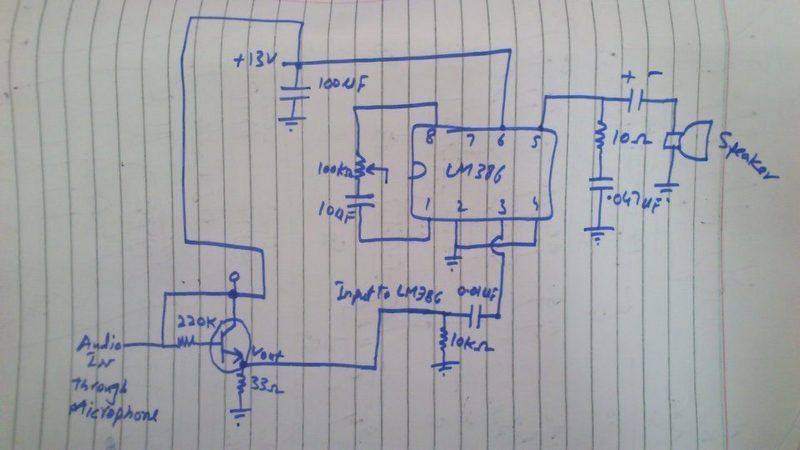 +13V
100uF
+ -
8 7 6 5
LM386
1 2 3 4
100kΩ
10uF
10Ω
.047uF
Speaker
Input to LM386
0.01uF
10KΩ
220K
Vout
33Ω
Audio
In
Through
Microphone